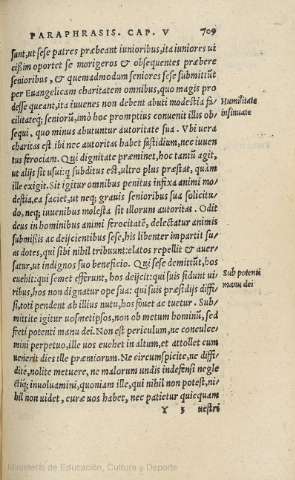 PARAPHRASIS. CAP. V 709
sunt, ut sese patres præbeant iunioribus, ita iuniores ui
cißim oportet se morigeros & obsequentes præbere
senioribus, & quemadmodum seniores sese submittūt
per Euangelicam charitatem omnibus, quo magis pro
desse queant, ita iuuenes non debent abuti modestia fa
Humilitatē
cilitateq; seniorū, imò hoc promptius conuenit illis ob
insinuate
sequi, quo minus abutuntur autoritate sua. Vbi uera
charitas est ibi nec autoritas habet fastidium, nec iuuen
tus ferociam. Qui dignitate præminet, hoc tantū agit,
ut alijs sit usui: q subditus est, ultro plus præstat, quàm
ille exigit. Sit igitur omnibus penitus infixa animi mo
destia, ea faciet, ut neq; grauis senioribus sua solicitu
do, neq; iuuenibus molesta sit illorum autoritas. Odit
deus in hominibus animi ferocitatē, delectatur animis
submißis ac deijcientibus sese, his libenter impartit su
as dotes, qui sibi nihil tribuunt: elatos repellit & auer
satur, ut indignos suo beneficio. Qui sese demittūt, hos
euehit: qui semet efferunt, hos deijcit: qui suis fidunt ui
Sub potenti
ribus, hos non dignatur ope sua: qui suis præsidijs diffi
manu dei
si, toti pendent ab illius nutu, hos fouet ac tuetur. Sub
mittite igitur uosmetipsos, non ob metum hominū, sed
freti potenti manu dei. Non est periculum, ne conculce
mini perpetuo, ille uos euehet in altum, et attollet cum
uenerit dies ille præmiorum. Ne circumspicite, ne diffi
dite, nolite metuere, ne malorum undis indefensi negle
ctiq; inuoluamini, quoniam ille, qui nihil non potest, ni
hil non uidet, curæ uos habet, nec patietur quicquam
Y 3 uestri
Ministerio de Educación, Cultura y Deporte